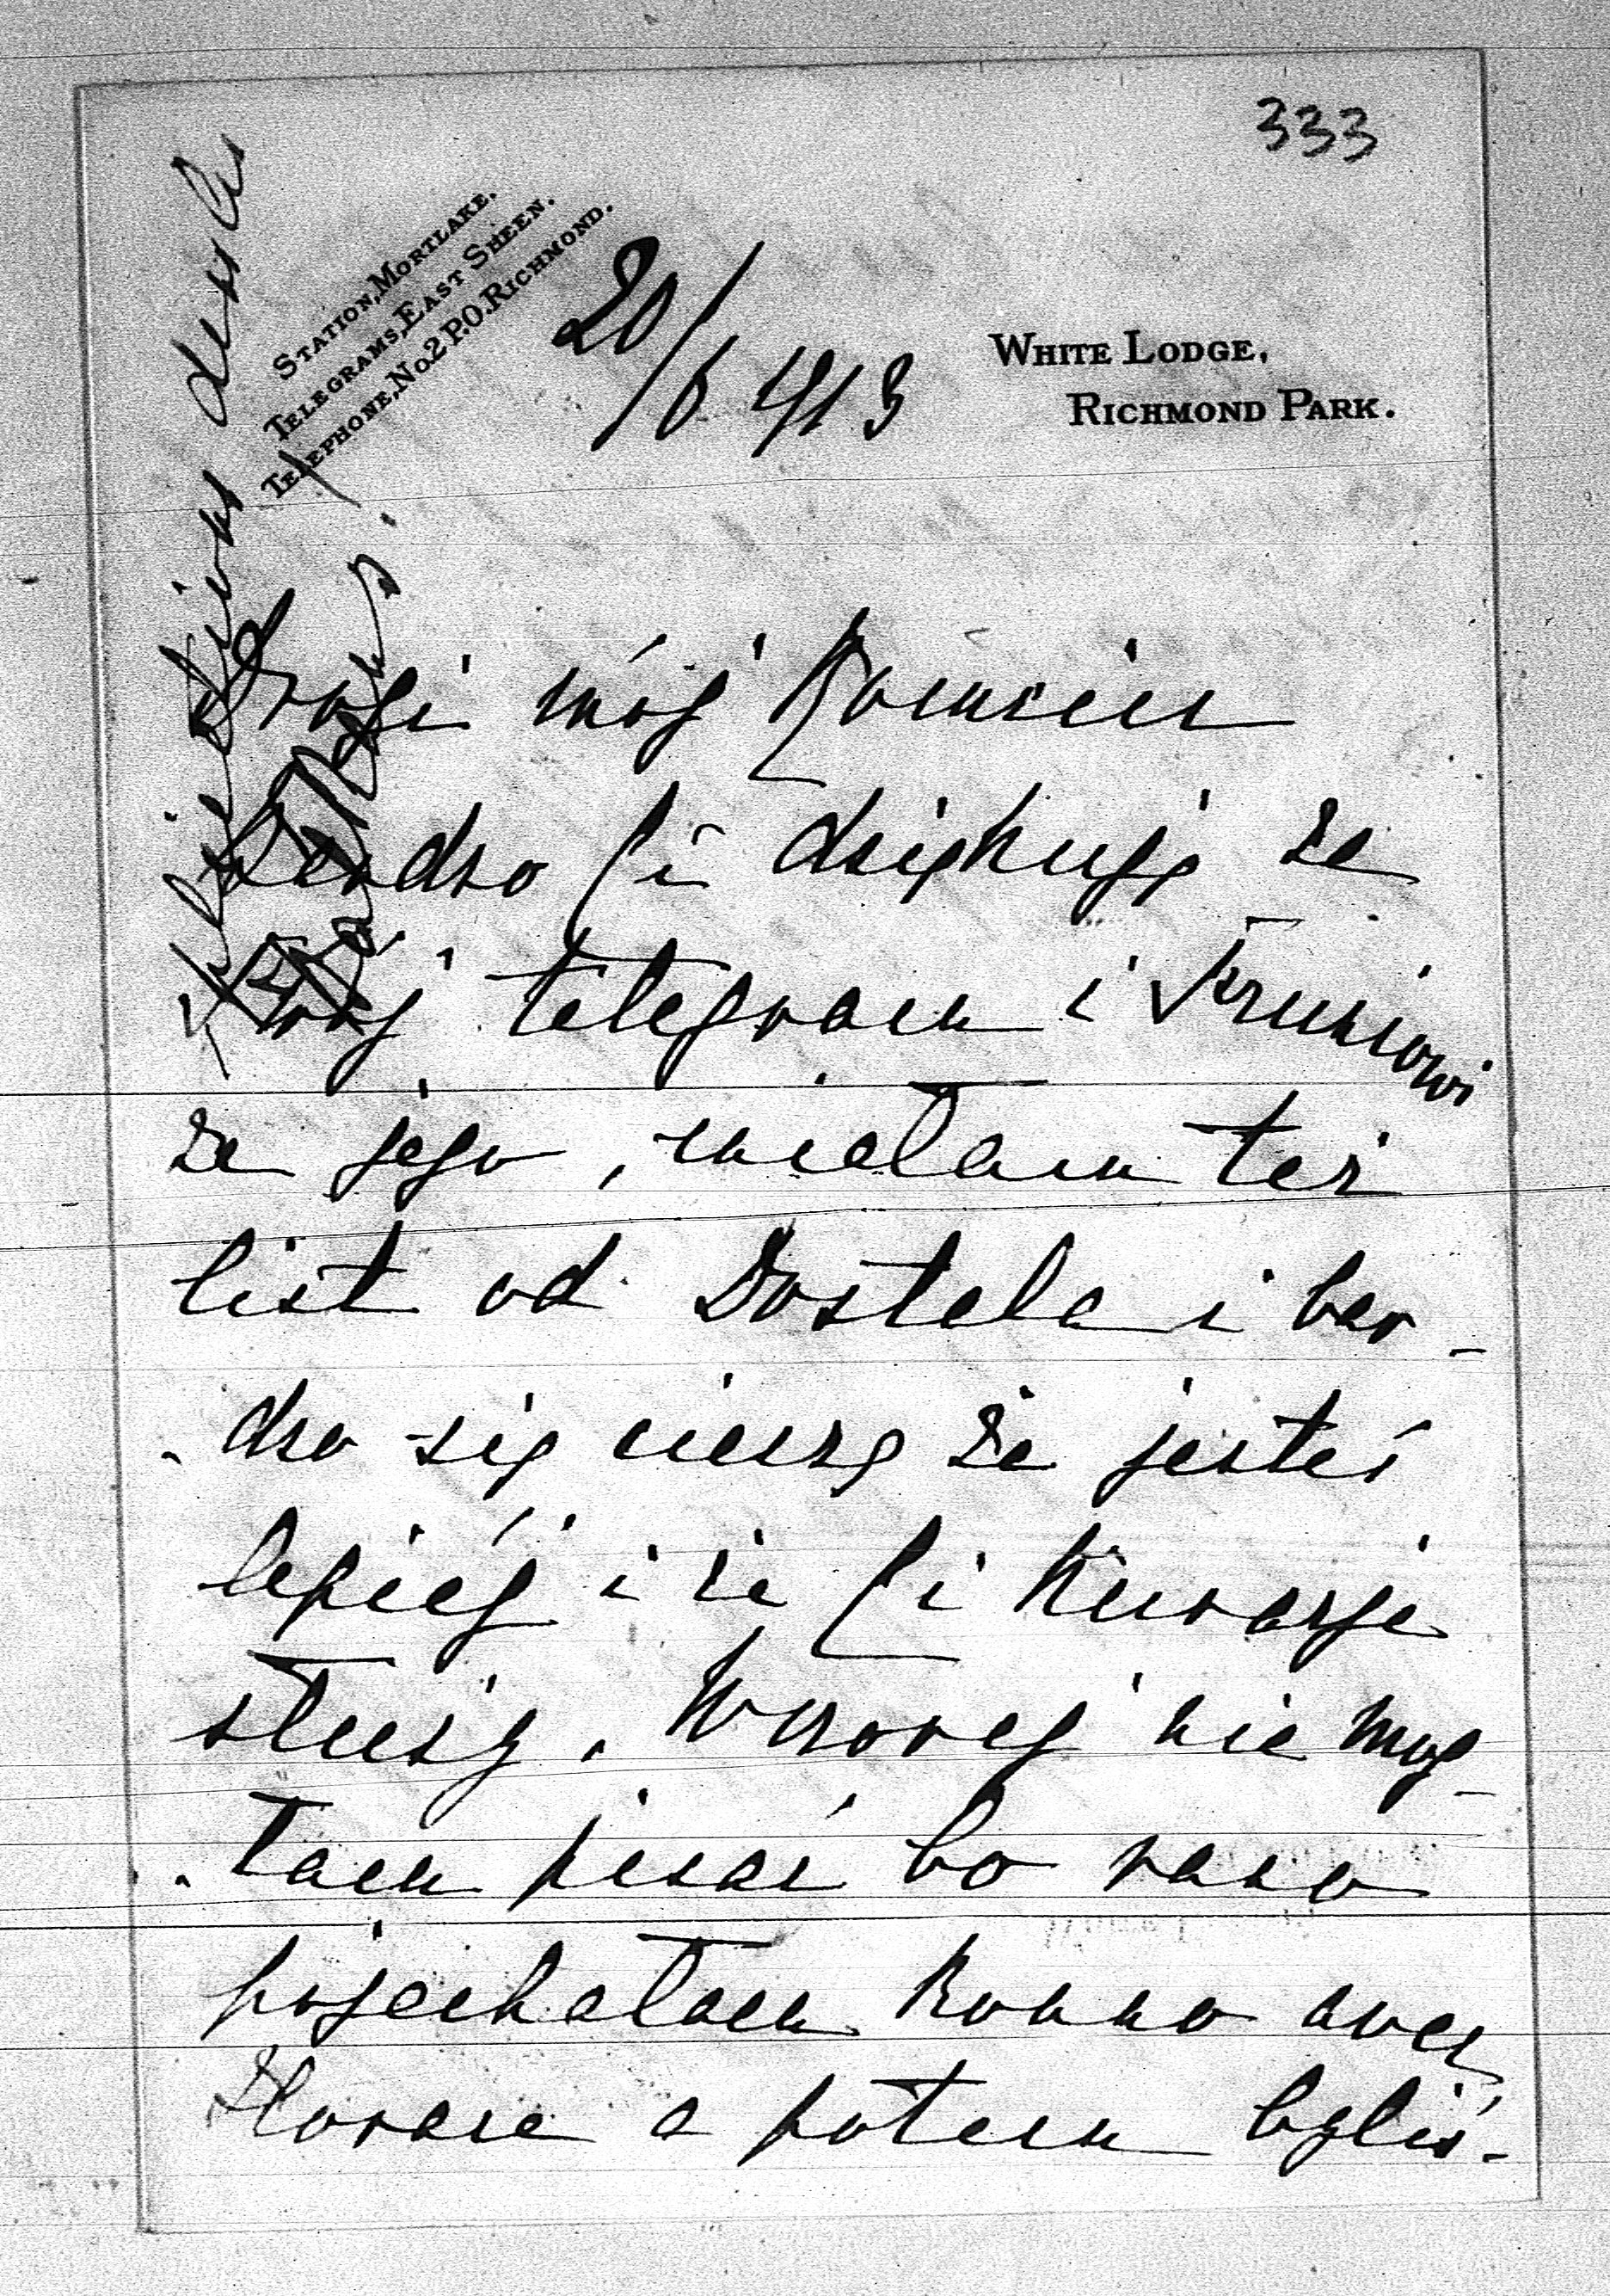 333
STATION, MORTLAKE.
TELEGRAMS, EAST SHEEN.
TELEPHONE, No 2 P.O. RICHMOND.
20/6 913
WHITE LODGE,
RICHMOND PARK.
Drogi mój
Bardzo Ci dziękuję za
Twój telegram i
za jego, miałam też
list od Dostala i bar-
dzo się cieszę że jesteś
lepiéj i że Ci kuracja
służy. Wczoraj nie mog-
łam pisać bo rano
pojechałam konno
a potem byliś-